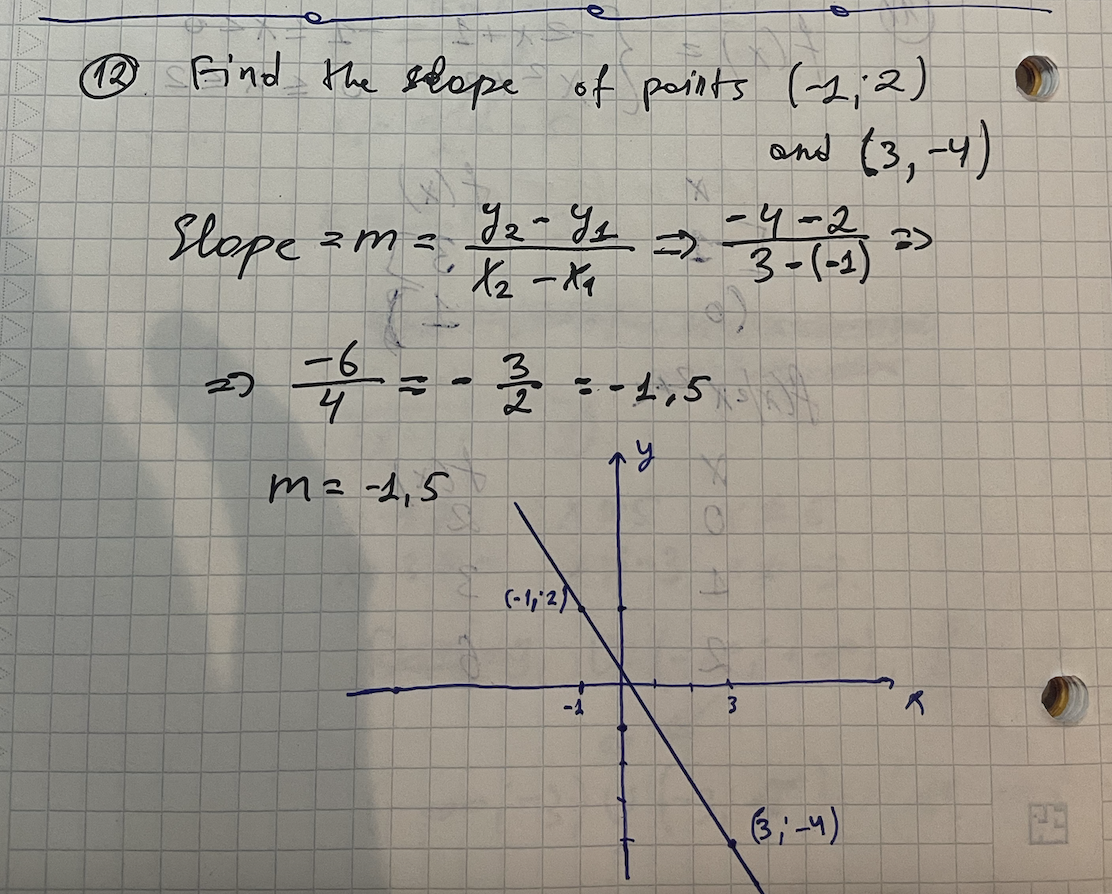 12 Find the slope of points (-1; 2)
and (3, -4)
Slope = m = y₂ - y₁ / x₂ - x₁ ⇒ -4 - 2 / 3 - (-1) ⇒
⇒ -6 / 4 = - 3 / 2 = -1,5
m = -1,5
y
(-1; 2)
-1 3 x
(3; -4)